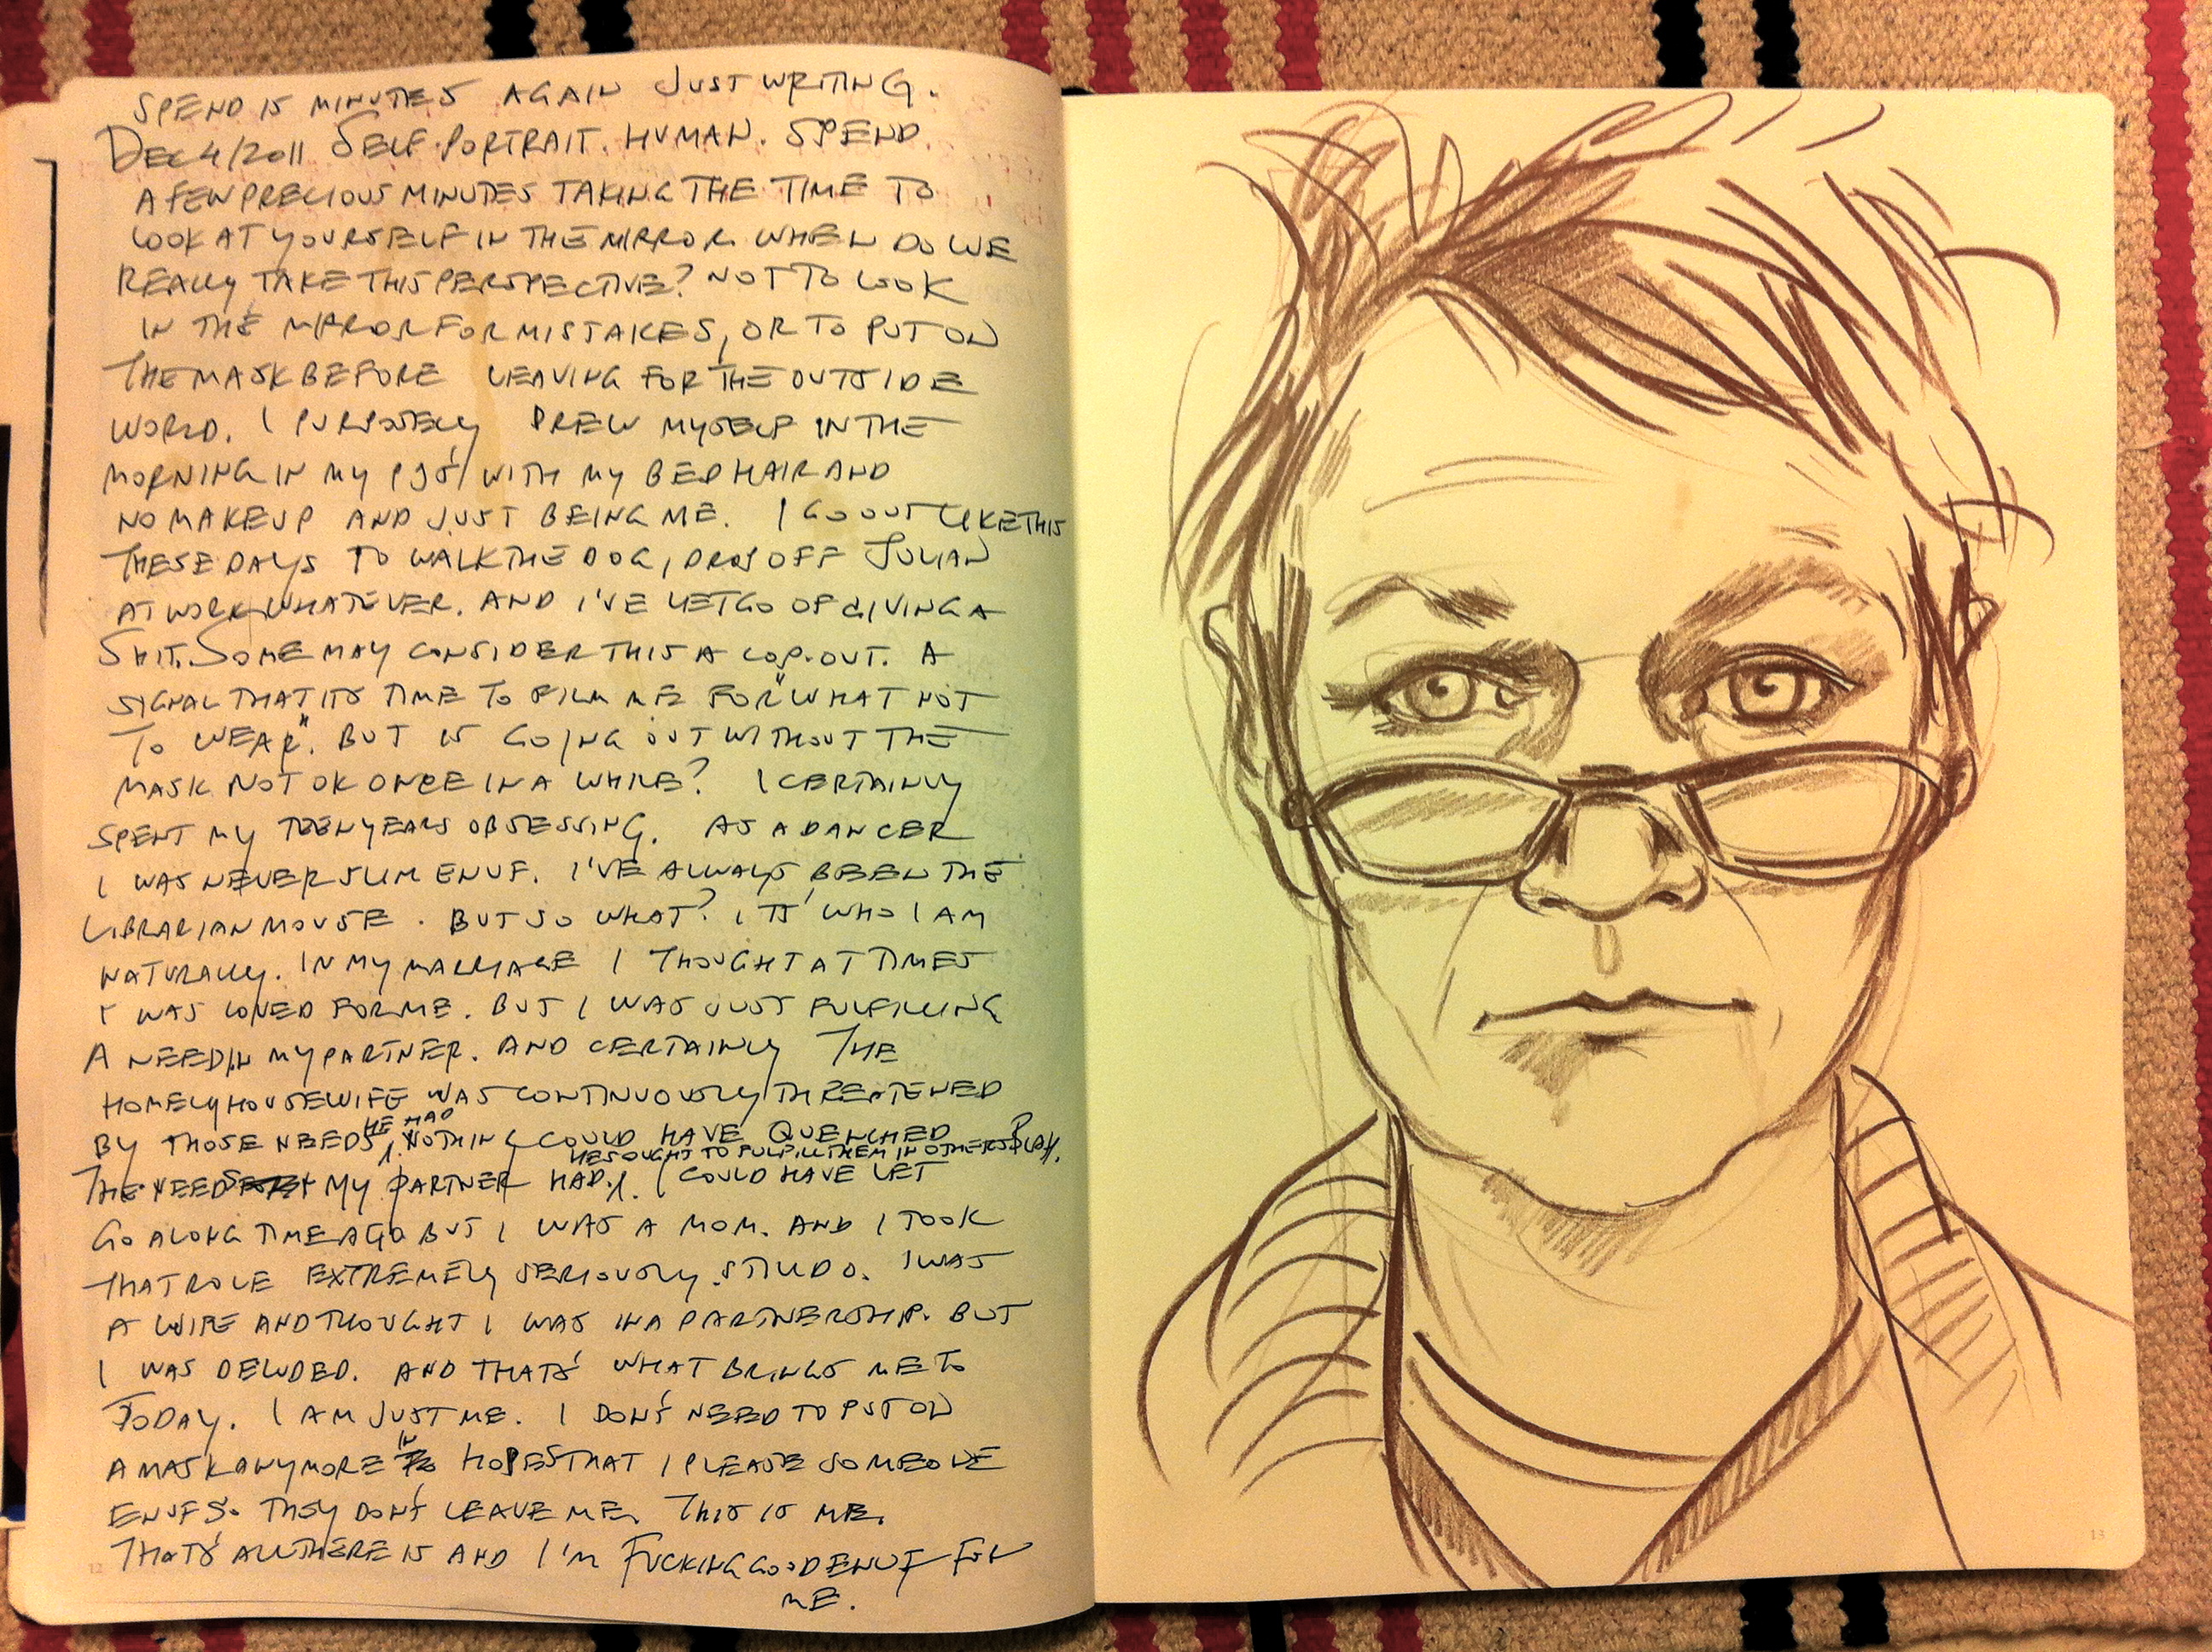 SPEND 15 MINUTES AGAIN JUST WRITING.
DEC 4/2011 SELF-PORTRAIT. HUMAN. SPEND
A FEW PRECIOUS MINUTES TAKING THE TIME TO
LOOK AT YOURSELF IN THE MIRROR. WHEN DO WE
REALLY TAKE THIS PERSPECTIVE? NOT TO LOOK
IN THE MIRROR FOR MISTAKES, OR TO PUT ON
THE MASK BEFORE LEAVING FOR THE OUTSIDE
WORLD. I PURPOSELY DREW MYSELF IN THE
MORNING IN MY PJ'S WITH MY BED HAIR AND
NO MAKEUP AND JUST BEING ME. I GO OUT LIKE THIS
THESE DAYS TO WALK THE DOG, DROP OFF JULIAN
AT WORK, WHATEVER. AND I'VE LET GO OF GIVING A
SHIT. SOME MAY CONSIDER THIS A COP-OUT. A
SIGNAL THAT ITS TIME TO FILM ME FOR "WHAT NOT
TO WEAR". BUT IS GOING OUT WITHOUT THE
MASK NOT OK ONCE IN A WHILE? I CERTAINLY
SPENT MY TEEN YEARS OBSESSING. AS A DANCER
I WAS NEVER SLIM ENUF. I'VE ALWAYS BEEN THE
LIBRARIAN MOUSE. BUT SO WHAT? IT'S WHO I AM
NATURALLY. IN MY MARRIAGE I THOUGHT AT TIMES
I WAS LOVED FOR ME. BUT I WAS JUST FULFILLING
A NEED IN MY PARTNER. AND CERTAINLY THE
HOMELY HOUSEWIFE WAS CONTINUOUSLY THREATENED
BY THOSE NEEDS HE HAD. NOTHING COULD HAVE QUENCHED
THE NEEDS MY PARTNER HAD. HE SOUGHT TO FULFILL THEM IN OTHERS PLAY. I COULD HAVE LET
GO A LONG TIME AGO BUT I WAS A MOM. AND I TOOK
THAT ROLE EXTREMELY SERIOUSLY. STILL DO. I WAS
A WIFE AND THOUGHT I WAS IN A PARTNERSHIP. BUT
I WAS DELUDED. AND THAT'S WHAT BRINGS ME TO
TODAY. I AM JUST ME. I DON'T NEED TO PUT ON
A MASK ANYMORE IN HOPES THAT I PLEASE SOMEONE
ENUF SO THEY DON'T LEAVE ME. THIS IS ME.
THAT'S ALL THERE IS AND I'M FUCKING GOOD ENUF FOR
ME.
12
13